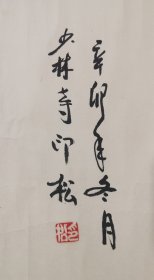 辛卯年冬月
少林寺印松
印松